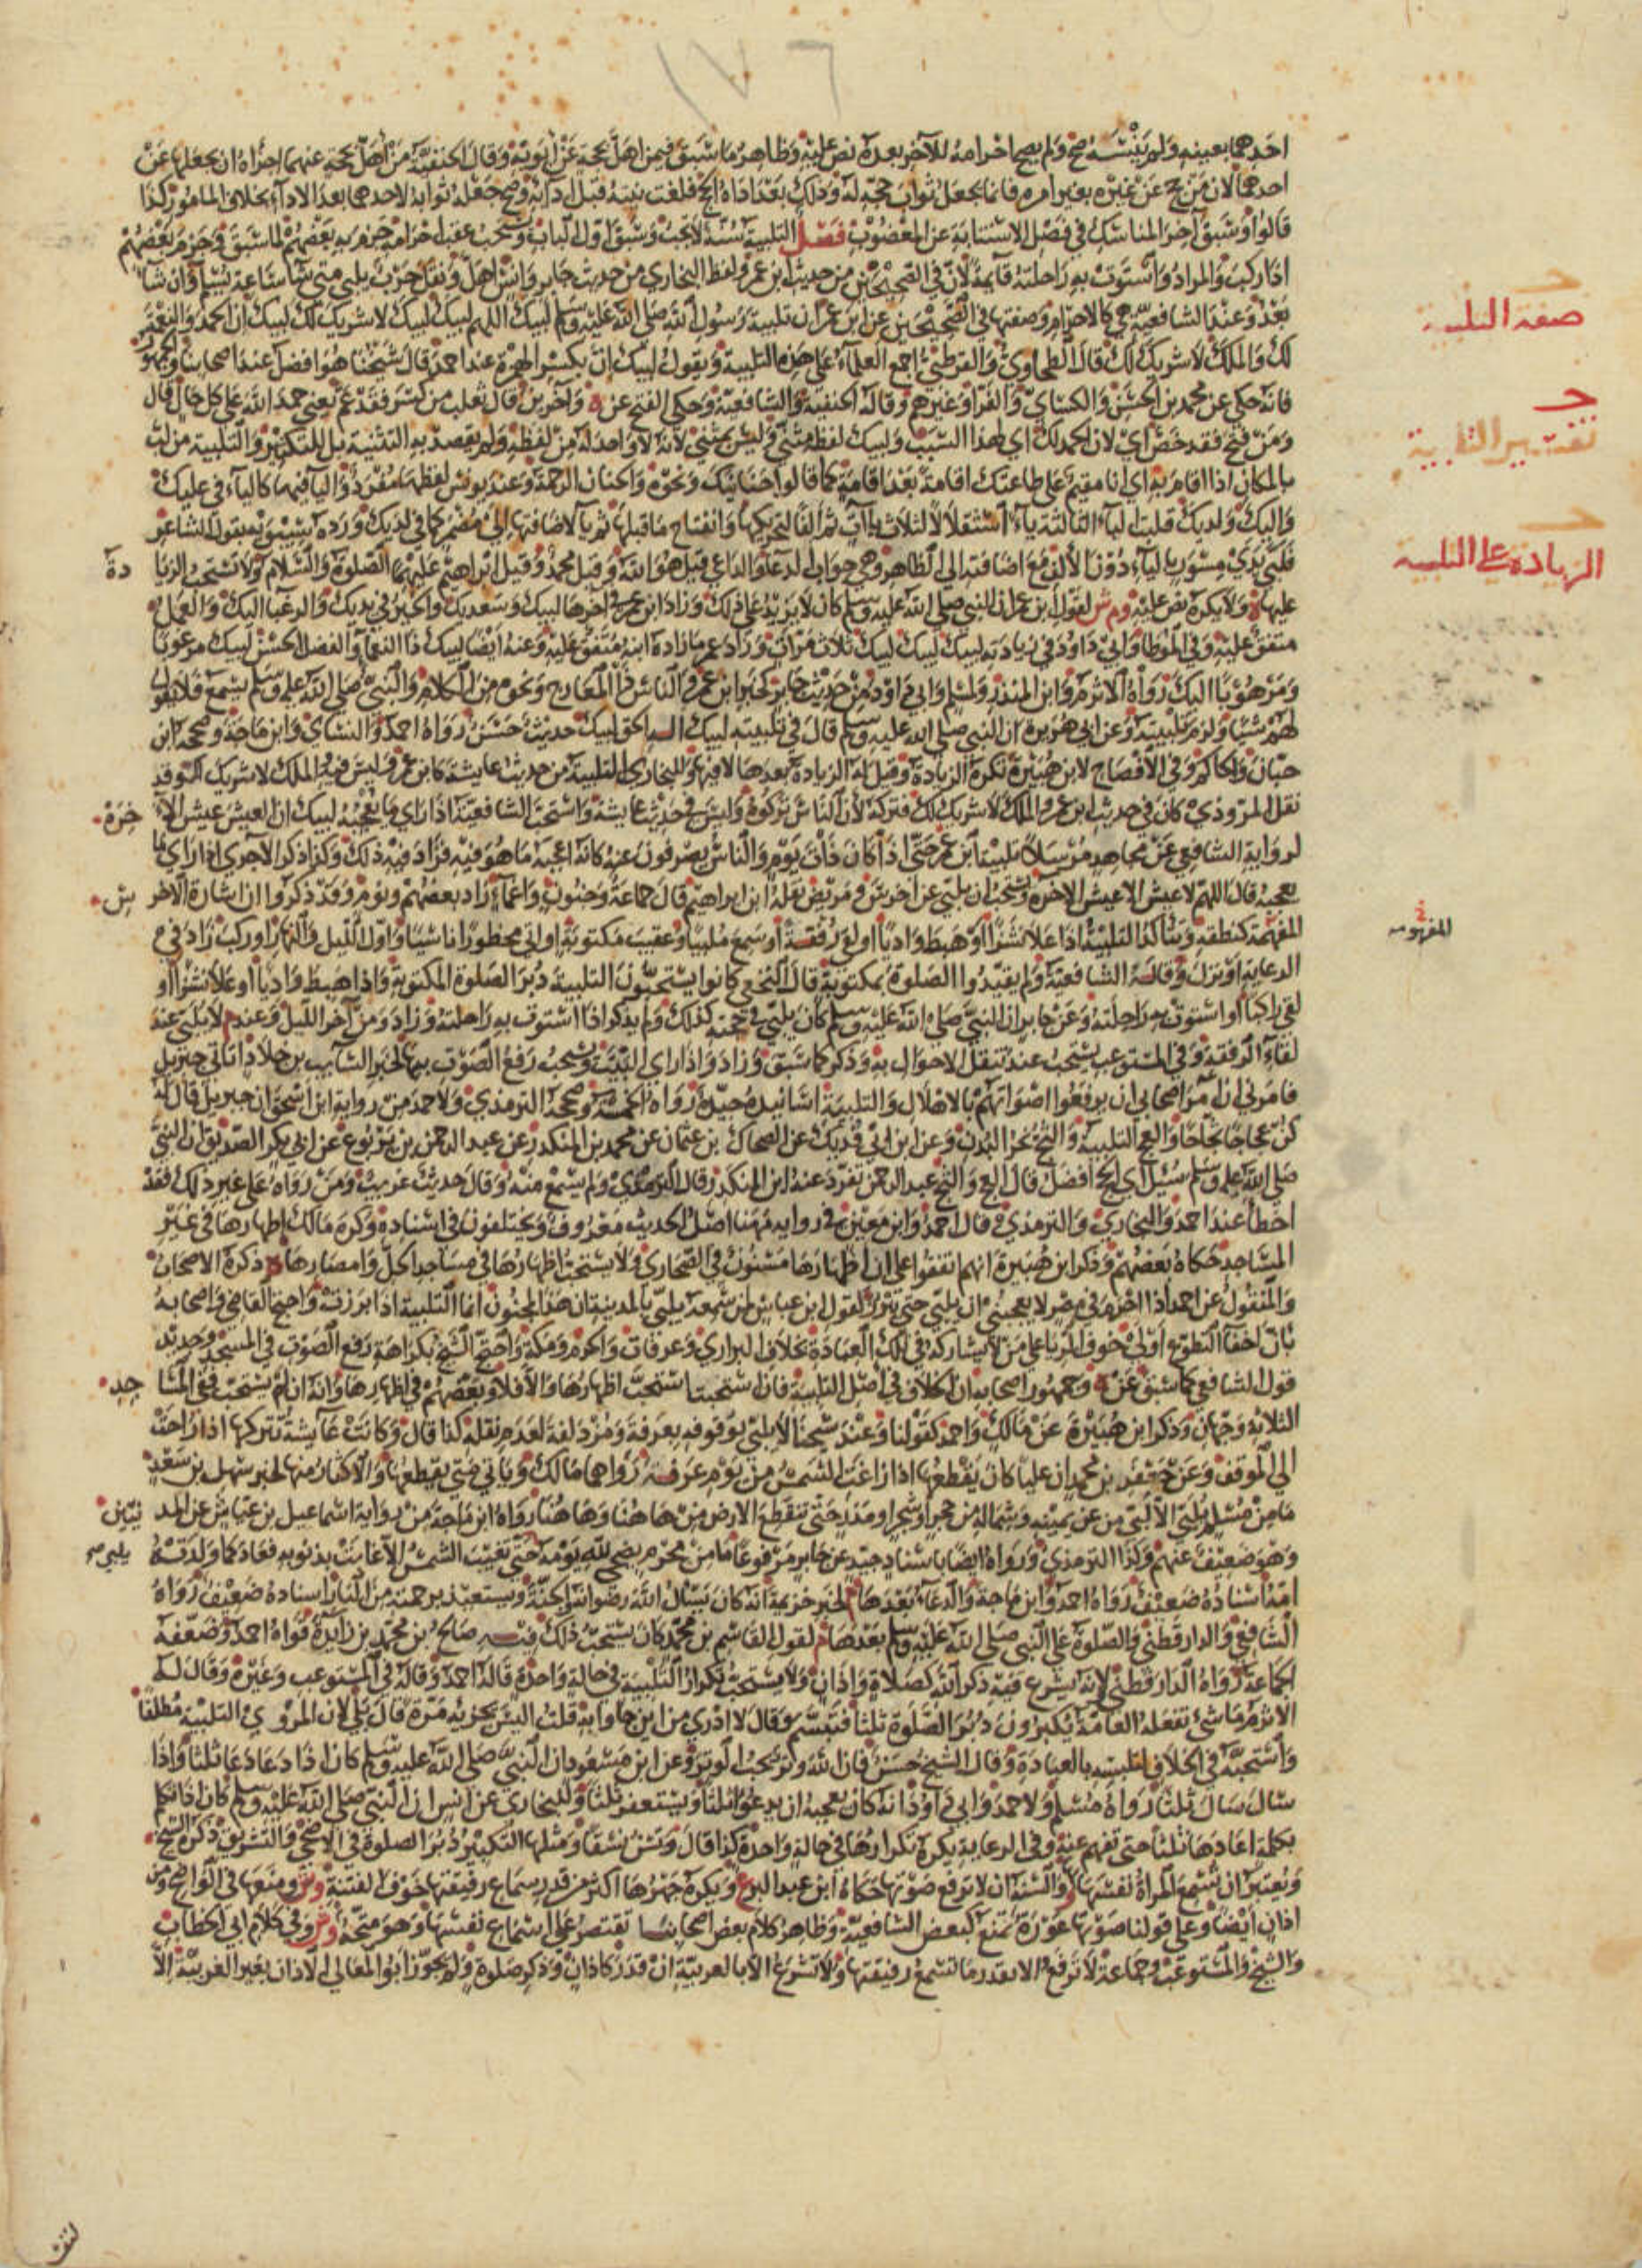 ١٧٦
احدهما بعينه ولم ينسه صح ولم يصح احرامه للآخر بعده نص عليه وظاهر ما سبق فيمن اهل بحجة عن ابويه وقال الحنفية من اهل بحجة عنهما اجزاه ان يجعلها عن
احدهما لان من حج عن غيره بغير امره فانما يجعل ثواب حجه له وذلك بعد اداء الحج فلغت نيته قبل ادائه وصح جعله ثوابه لاحدهما بعد الاداء بخلاف المامور كذا
قالوا وسبق آخر المناسك في فصل الاستنابة عن المعضوب فصل التلبية سنة لا تجب وسبق اول الباب وتستحب عقب احرامه جزم به بعضهم لما سبق وجزم بعضهم
اذا ركب والمراد واستوت به راحلته قائمة لان في الصحيحين من حديث ابن عمر ولفظ البخاري من حديث جابر وانس اهل ونقل حرب يلبي متى شاء ساعة يسلم وان شاء
بعد وعند الشافعية هي كالاحرام وصفتها في الصحيحين عن ابن عمر ان تلبية رسول الله صلى الله عليه وسلم لبيك اللهم لبيك لبيك لا شريك لك لبيك ان الحمد والنعمة
لك والملك لا شريك لك قال الطحاوي والقرطبي اجمع العلماء على هذه التلبية ويقول لبيك ان بكسر الهمزة عند احمد قال شيخنا هو افضل عند اصحابنا والجمهور
فانه حكي عن محمد بن الحسن والكسائي والفراء وغيرهم وقاله الحنفية والشافعية وحكي الفتح عن ه وآخرين قال ثعلب من كسر فقد عم يعني حمد الله على كل حال قال
ومن فتح فقد خص اي لان الحمد لك اي لهذا السبب ولبيك لفظه مثنى وليس بمثنى لانه لا واحد له من لفظه ولم يقصد به التثنية بل للتكثير والتلبية من لب
بالمكان اذا اقام به اي انا مقيم على طاعتك اقامة بعد اقامة كما قالوا حنانيك ونحوه والحنان الرحمة وعند يونس لفظها مفرد والياء فيها كالياء في عليك
واليك ولديك قلبت الباء الثالثة ياء استثقالا لثلاث باآت ثم الفا لتحركها وانفتاح ما قبلها ثم ياء لاضافتها الى مضمر كما في لديك ورده سيبويه بقول الشاعر
فلبي يدي مسور بالياء دون الالف مع اضافته الى الظاهر وهي جواب الدعاء والداعي قيل هو الله وقيل محمد وقيل ابراهيم عليهما الصلوة والسلام ولا تستحب الزيا دة
عليها ه ولا يكره نص عليه وم ش لقول ابن عمر ان النبي صلى الله عليه وسلم كان لا يزيد على ذلك وزاد ابن عمر في آخرها لبيك وسعديك والخير في يديك والرغباء اليك والعمل
متفق عليه وفي الموطا وابي داود في زيادته لبيك لبيك لبيك ثلاث مرات وزاد عمر ما زاده ابنه متفق عليه وعنه ايضا لبيك ذا النعماء والفضل الحسن لبيك مرغوبا
ومرهوبا اليك رواه الاثرم وابن المنذر ولمسلم وابي داود من حديث جابر كخبر ابن عمر والناس ذا المعارج ونحوه من الكلام والنبي صلى الله عليه وسلم يسمع فلا يقول
لهم شيئا ولزم تلبيته وعن ابي هريرة ان النبي صلى الله عليه وسلم قال في تلبيته لبيك اله الحق لبيك حديث حسن رواه احمد والنسائي وابن ماجة وصححه ابن
حبان والحاكم وفي الافصاح لابن هبيرة تكره الزيادة وقيل له الزيادة بعدها لا فيها وللبخاري التلبية من حديث عايشة كابن عمر وليس فيه والملك لا شريك لك وقد
نقل المروذي كان في حديث ابن عمر والملك لا شريك لك فتركه لان الناس تركوه وليس في حديث عايشة واستحب الشافعية اذا راى ما يعجبه لبيك ان العيش عيش الآ خرة
لرواية الشافعي عن مجاهد مرسلا تلبية ابن عمر حتى اذا كان ذات يوم والناس يصرفون عنه كانه اعجبه ما هو فيه فزاد فيه ذلك وكذا ذكر الآجري اذا راى ما
يعجبه قال اللهم لا عيش الا عيش الآخرة ويستحب ان يلبي عن اخرس ومريض نقله ابن ابراهيم قال جماعة وجنون واغماء زاد بعضهم ونوم وقد ذكروا ان اشارة الاخر س
المفهمة كنطقه ويتاكد التلبية اذا علا نشزا او هبط واديا او لقي رفقة او سمع ملبيا وعقيب مكتوبة او اتى محظورا ناسيا واول الليل والنهار او ركب زاد في
الرعاية او نزل وقاله الشافعية ولم يقيدوا الصلوة بمكتوبة قال النخعي كانوا يستحبون التلبية دبر الصلوة المكتوبة واذا هبط واديا او علا نشزا او
لقي راكبا او استوت به راحلته وعن جابر ان النبي صلى الله عليه وسلم كان يلبي في حجته كذلك ولم يذكر اذا استوت به راحلته وزاد ومن آخر الليل وعند م لا يلبي عند
لقاء الرفقة وفي المستوعب يستحب عند تنقل الاحوال به وذكر كما سبق وزاد واذا راى البيت ويستحب رفع الصوت بها لخبر السائب بن خلاد اتاني جبريل
فامرني ان آمر اصحابي ان يرفعوا اصواتهم بالاهلال والتلبية اسانيده جيدة رواه الخمسة وصححه الترمذي ولاحمد من رواية ابن اسحق ان جبريل قال له
كن عجاجا ثجاجا والعج التلبية والثج نحر البدن وعن ابن ابي فديك عن الضحاك بن عثمان عن محمد بن المنكدر عن عبد الرحمن بن يربوع عن ابي بكر الصديق ان النبي
صلى الله عليه وسلم سئل اي الحج افضل قال العج والثج عبد الرحمن تفرد عنه ابن المنكدر وقال الترمذي ولم يسمع منه وقال حديث غريب ومن رواه على غير ذلك فقد
اخطا عند احمد والبخاري والترمذي
المساجد حكاه بعضهم وذكر ابن هبيرة انهم اتفقوا على ان اظهارها مسنون في الصحاري ولا يستحب اظهارها في مساجد الحل وامصارها ذكره الاصحاب
والمنقول عن احمد اذا احرم في مصره لا يعجبني ان يلبي حتى يبرز لقول ابن عباس لمن سمعه يلبي بالمدينة ان هذا لمجنون انما التلبية اذا برزت واحتج القاضي واصحابه
بان اخفاء التطوع اولى خوف الريا على من لا يشاركه في تلك العبادة بخلاف البراري وعرفات والحرم ومكة واحتج الشيخ بكراهة رفع الصوت في المسجد وجديد
قول الشافعي كما سبق عن ه وجمهور اصحابه ان الخلاف في اصل التلبية فان استحبت استحب اظهارها والا فلا وبعضهم في اظهارها وانه ان لم يستحب ففي المسا جد
الثلاثة وجهان وذكر ابن هبيرة عن مالك واحمد كقولنا وعند شيخنا لا يلبي بوقوفه بعرفة ومزدلفة لعدم نقله كذا قال وكانت عايشة تتركها اذا راحت
الى الموقف وعن جعفر بن محمد ان عليا كان يقطعها اذا زاغت الشمس من يوم عرفة رواهما مالك وياتي متى يقطعها والاكثار منها لخبر سهل بن سعد
ما من مسلم يلبي الا لبى من عن يمينه وشماله من حجر او شجر او مدر حتى تنقطع الارض من هاهنا وهاهنا رواه ابن ماجة من رواية اسماعيل بن عياش عن المد نيين
وهو ضعيف عنهم وكذا الترمذي ورواه ايضا باسناد جيد عن جابر مرفوعا ما من محرم يضحي لله يومه حتى تغيب الشمس الا غابت بذنوبه فعاد كما ولدته يلبي صح
امه اسناده ضعيف رواه احمد وابن ماجة والدعاء بعدها لخبر خزيمة انه كان يسال الله رضوانه والجنة ويستعيذ برحمته من النار اسناده ضعيف رواه
الشافعي والدارقطني والصلوة على النبي صلى الله عليه وسلم بعدها لقول القاسم بن محمد كان يستحب ذلك فيه صالح بن محمد بن زائدة قواه احمد وضعفه
الجماعة رواه الدارقطني لانه يشرع فيه ذكر الله كصلاة واذان ولا يستحب تكرار التلبية في حالة واحدة قاله احمد وقاله في المستوعب وغيره وقال له
الاثرم ما شيء تفعله العامة يكبرون دبر الصلوة ثلثا فتبسم وقال لا ادري من اين جاوا به قلت اليس يجزيه مرة قال بلى لان المروي التلبية مطلقا
واستحبه في الخلاف لتلبسه بالعبادة وقال الشيخ حسن فان الله وتر يحب الوتر وعن ابن مسعود ان النبي صلى الله عليه وسلم كان اذا دعا دعا ثلثا واذا
سال سال ثلثا رواه مسلم ولاحمد وابي داود انه كان يعجبه ان يدعو ثلثا ويستغفر ثلثا وللبخاري عن انس ان النبي صلى الله عليه وسلم كان اذا تكلم
بكلمة اعادها ثلثا حتى تفهم عنه وفي الرعاية يكره تكرارها في حالة واحدة كذا قال وتسن نسقا ومثلها التكبير دبر الصلوة في الاضحى والتشريق ذكره الشيخ
ويعتبر ان تسمع المراة نفسها والسنة ان لا ترفع صوتها حكاه ابن عبد البر ع ويكره جهرها اكثر من قدر سماع رفيقتها خوف الفتنة ومنعها في الواضح ومن
اذان ايضا وعلى قولنا صوتها عورة تمنع كبعض الشافعية وظاهر كلام بعض اصحابنا تقتصر على اسماع نفسها وهو متجه وفي كلام ابي الخطاب
والشيخ والمستوعب وجماعة لا ترفع الا بقدر ما تسمع رفيقتها ولا تشرع الا بالعربية ان قدر كاذان وذكر صلوة ولم يجوز ابو المعالي الاذان بغير العربية الا
صفة التلبية
تفسير التلبية
الزيادة على التلبية
المفهومه
لنفسه